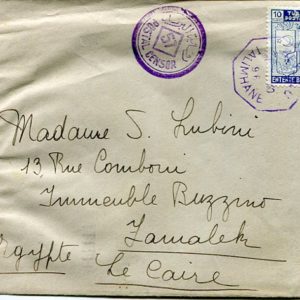 POSTAL CENSOR
10
TALIMHANE
ENTENTE B
Madame S. Lubini
13, Rue Comboni
Immeuble Buzzino
Zamalek
Egypte Le Caire